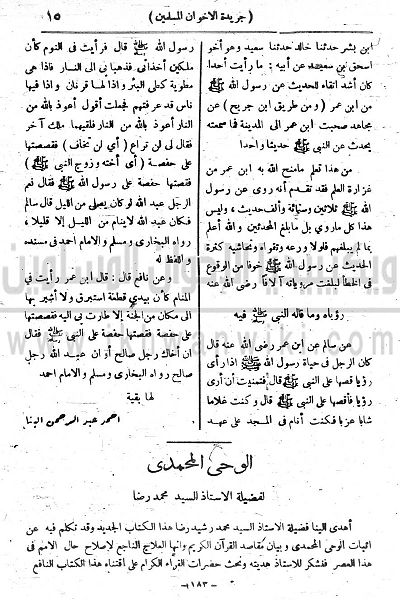 ١٥
( جريدة الاخوان المسلمين )
ابن بشر حدثنا خالد حدثنا سعيد وهو أخو
اسحق بن سعيد عن أبيه : ما رأيت أحدا
كان أشد اتقاء للحديث عن رسول الله ﷺ
من ابن عمر ( ومن طريق ابن جريج ) عن
مجاهد صحبت ابن عمر الى المدينة فما سمعته
يحدث عن النبي ﷺ حديثا واحدا
من هذا تعلم مامنح الله به ابن عمر من
غزارة العلم فقد تقدم أنه روى عن رسول
الله ﷺ ثلاثين وستمائة وألف حديث ، وليس
هذا كل ماروي بل مابلغ المحدثين والله أعلم
بما لم يبلغهم فلولا ورعه وتقواه وتحاشيه كثرة
الحديث عن رسول الله ﷺ خوفا من الوقوع
في الخطأ لبلغت مروياته آلافا رضى الله عنه
رؤياه وما قاله النبي ﷺ فيه
عن سالم عن ابن عمر رضى الله عنه قال
كان الرجل في حياة رسول الله ﷺ اذا رأى
رؤيا قصها على النبي ﷺ قال فتمنيت أن أرى
رؤيا فأقصها على النبي ﷺ قال وكنت غلاما
شابا عزبا فكنت أنام في المسجد على عهد
رسول الله ﷺ قال فرأيت في النوم كأن
ملكين أخذاني فذهبا بي الى النار فاذا هي
مطوية كطي البئر واذا لها قرنان واذا فيها
ناس قد عرفتهم فجعلت أقول أعوذ بالله من
النار أعوذ بالله من النار فلقيهما ملك آخر
فقال لى لن تراع ( أي لن تخاف ) فقصصتها
على حفصة ( أى أخته وزوج النبي ﷺ )
فقصتها حفصة على رسول الله ﷺ فقال نعم
الرجل عبد الله لو كان يصلى من الليل قال سالم
فكان عبد الله لاينام من الليل إلا قليلا ،
رواه البخارى ومسلم والامام احمد فى مسنده
واللفظ له
وعن نافع قال : قال ابن عمر رأيت في
المنام كأن بيدي قطعة استبرق ولا أشير بها
الى مكان من الجنة إلا طارت بي اليه فقصصتها
على حفصة فقصتها حفصة على النبي ﷺ فقال
ان أخاك رجل صالح أو ان عبد الله رجل
صالح رواه البخارى ومسلم والامام احمد
لها بقية
احمد عبد الرحمن البنا
الوحى المحمدى
لفضيلة الاستاذ السيد محمد رضا
أهدى الينا فضيلة الاستاذ السيد محمد رشيد رضا هذا الكتاب الجديد وقد تكلم فيه عن
اثبات الوحى المحمدى وبيان مقاصد القرآن الكريم وانها العلاج الناجع لاصلاح حال الامم في
هذا العصر فنشكر للاستاذ هديته ونحث حضرات القراء الكرام على اقتناء هذا الكتاب النافع
— ١٨٣ —